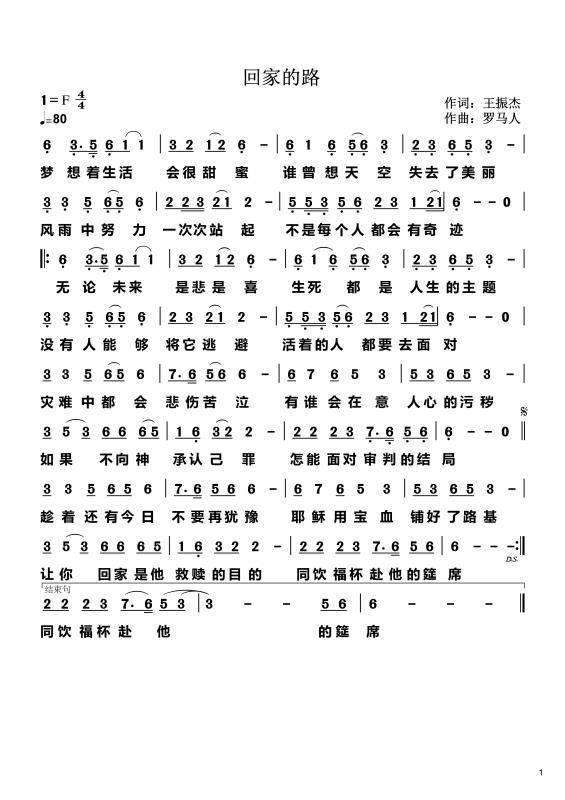 回家的路
1=F 4/4
♩=80
作词：王振杰
作曲：罗马人
6 3·5 6 1 1 | 3 2 1 2 6 - | 6 1 6 5 6 3 | 2 3 6 5 3 - |
梦 想着生活 会很甜 蜜 谁曾想天 空 失去了美丽
3 3 5 6 5 6 | 2 2 3 2 1 2 - | 5 5 3 5 6 2 3 1 2 1 | 6 - - 0
风雨中努 力 一次次站 起 不是每个人都会有奇 迹
‖: 6 3·5 6 1 1 | 3 2 1 2 6 - | 6 1 6 5 6 3 | 2 3 6 5 3 - |
无 论 未来 是悲是 喜 生死 都 是 人生的主题
3 3 5 6 5 6 | 2 3 2 1 2 - | 5 5 3 5 6 2 3 1 2 1 | 6 - - 0 |
没有人能 够 将它逃 避 活着的人 都要去面 对
3 3 5 6 5 6 | 7·6 5 6 6 - | 6 7 6 5 3 | 5 3 6 5 3 - |
灾难中都 会 悲伤苦 泣 有谁会在意 人心的污秽
3 5 3 6 6 6 5 | 1 6 3 2 2 - | 2 2 2 3 7·6 5 6 | 6 - - 0 ‖
如果 不向神 承认己 罪 怎能面对审判的结 局
3 3 5 6 5 6 | 7·6 5 6 6 - | 6 7 6 5 3 | 5 3 6 5 3 - |
趁着还有今日 不要再犹豫 耶稣用宝 血 铺好了路基
3 5 3 6 6 6 5 | 1 6 3 2 2 - | 2 2 2 3 7·6 5 6 | 6 - - :‖
D.S.
让你 回家是他 救赎的目的 同饮福杯赴他的筵 席
结束句
2 2 2 3 7·6 5 3 | 3 - - 5 6 | 6 - - - ‖
同饮福杯赴 他 的筵 席
1